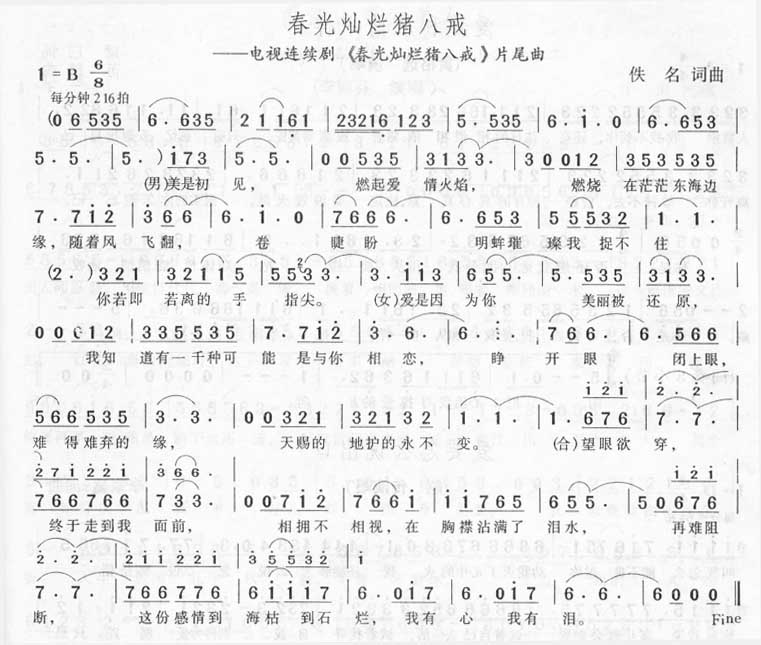 春光灿烂猪八戒
——电视连续剧《春光灿烂猪八戒》片尾曲
1=B 6/8
佚 名 词曲
每分钟216拍
(0 6 5 3 5 | 6· 6 3 5 | 2 1 1 6 1 | 2 3 2 1 6 1 2 3 | 5· 5 3 5 | 6· 1· | 6· 6 5 3 |
5· 5· | 5·) 1 7 3 | 5· 5· | 0 0 5 3 5 | 3 1 3 3· | 3 0 0 1 2 | 3 5 3 5 3 5 |
(男)美是初 见, 燃起爱 情火焰, 燃烧 在茫茫东海边
7· 7 1 2 | 3 6 6 | 6· 1· 0 | 7 6 6 6· | 6· 6 5 3 | 5 5 5 3 2 | 1· 1· |
缘,随着风 飞翻, 卷 睫盼 明蚌璀 璨我 捉不 住
(2·) 3 2 1 | 3 2 1 1 5 | 5 5 3 3· | 3· 1 1 3 | 6 5 5· | 5· 5 3 5 | 3 1 3 3· |
你若即 若离的 手 指尖。 (女)爱是因 为你 美丽被 还原,
0 0 0 1 2 | 3 3 5 5 3 5 | 7· 7 1 2 | 3· 6· | 1· 1· | 7 6 6· | 6· 5 6 6 |
我知 道有一千种可 能 是与你 相 恋, 睁 开眼 闭上眼,
1 2 1 2· 2·
5 6 6 5 3 5 | 3· 3· | 0 0 3 2 1 | 3 2 1 3 2 | 1· 1· | 1· 6 7 6 | 7· 7· |
难 得难弃的 缘, 天赐的 地护的永不 变。 (合)望眼欲 穿,
2 7 1 2 2 1 3 6 6·
7 6 6 7 6 6 | 7 3 3· | 0 0 7 1 2 | 7 6 6 7 1 2 | 1 1 7 6 5 | 6 5 5· | 5 0 6 7 6 |
终于走到我 面前, 相拥不 相视,在 胸襟沾满了 泪水, 再难阻
2· 2· 2 1 1 2 2 1 3 5 5 3 2 1
7· 7· | 7 6 6 7 7 6 | 6 1 1 1 7 | 6· 0 1 7 | 6· 0 1 7 | 6· 6· | 6 0 0 0 ‖
断, 这份感情到 海枯 到石 烂,我有 心 我有 泪。 Fine